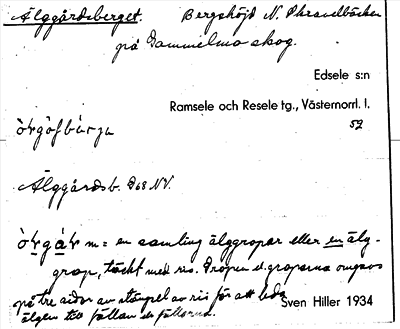 Älggårdsberget. Bergshöjd N.
på Gammelmo skog.
Edsele s:n
Ramsele och Resele tg., Västernorrl. l.
52
Älggårdsb. D68 NV.
m = en samling älggropar eller en älg-
grop, täckt med ris. Gropen el. groparna omgavs
på tre sidor av stängsel av ris för att leda
älgen till fällan el. fällorna.
Sven Hiller 1934